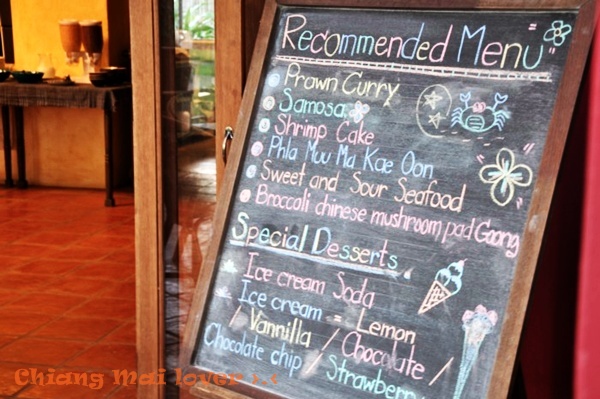 "Recommended Menu"
Prawn Curry
Samosa
Shrimp Cake
Phla Muu Ma Kae Oon
Sweet and Sour Seafood
Broccoli chinese mushroom pad Goong
Special Desserts
Ice cream Soda
Ice cream = Lemon
/ Vannilla / Chocolate /
Chocolate chip / Strawberry
Chiang Mai lover